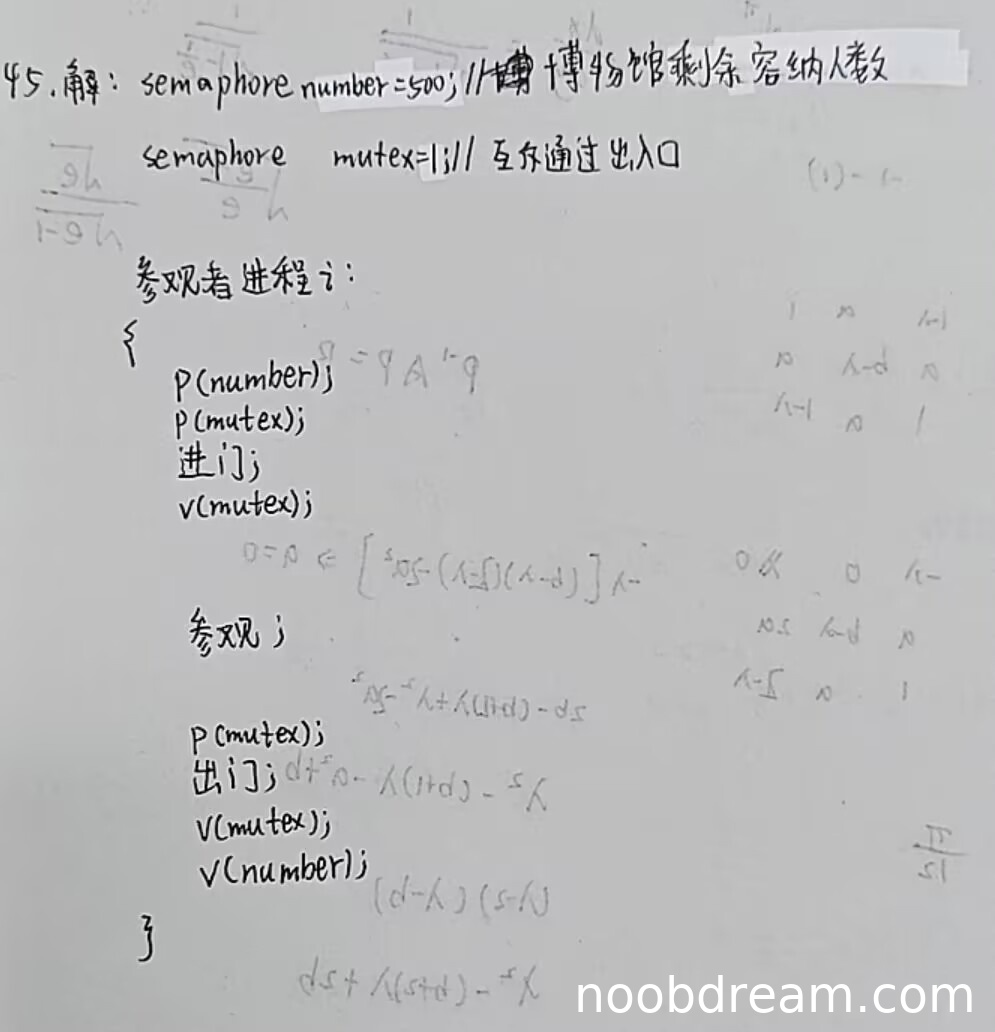 45.解: semaphore number=500;//博物馆剩余容纳人数
semaphore mutex=1;// 互斥通过出入口
参观者进程i:
{
P(number);
P(mutex);
进门;
V(mutex);
参观;
P(mutex);
出门;
V(mutex);
V(number);
}
noobdream.com